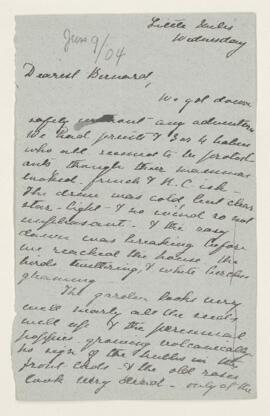 Jun 9/04
Little
Wednesday
Dearest Bernard,
We got down
safely without any adventure
We had & 3 or 4 babies
who all seemed to be
ants though their mammas
looked & R.C. ish.
The drive was cold, but clear
star-light & no wind so not
unpleasant. & the
dawn was breaking before
we reached the house the
birds twittering & white
gleaming
The garden looks very
well nearly all the
well up & the perennial
poppies growing
no sign of the bulbs in the
front beds & the old roses
look very dead – only of the